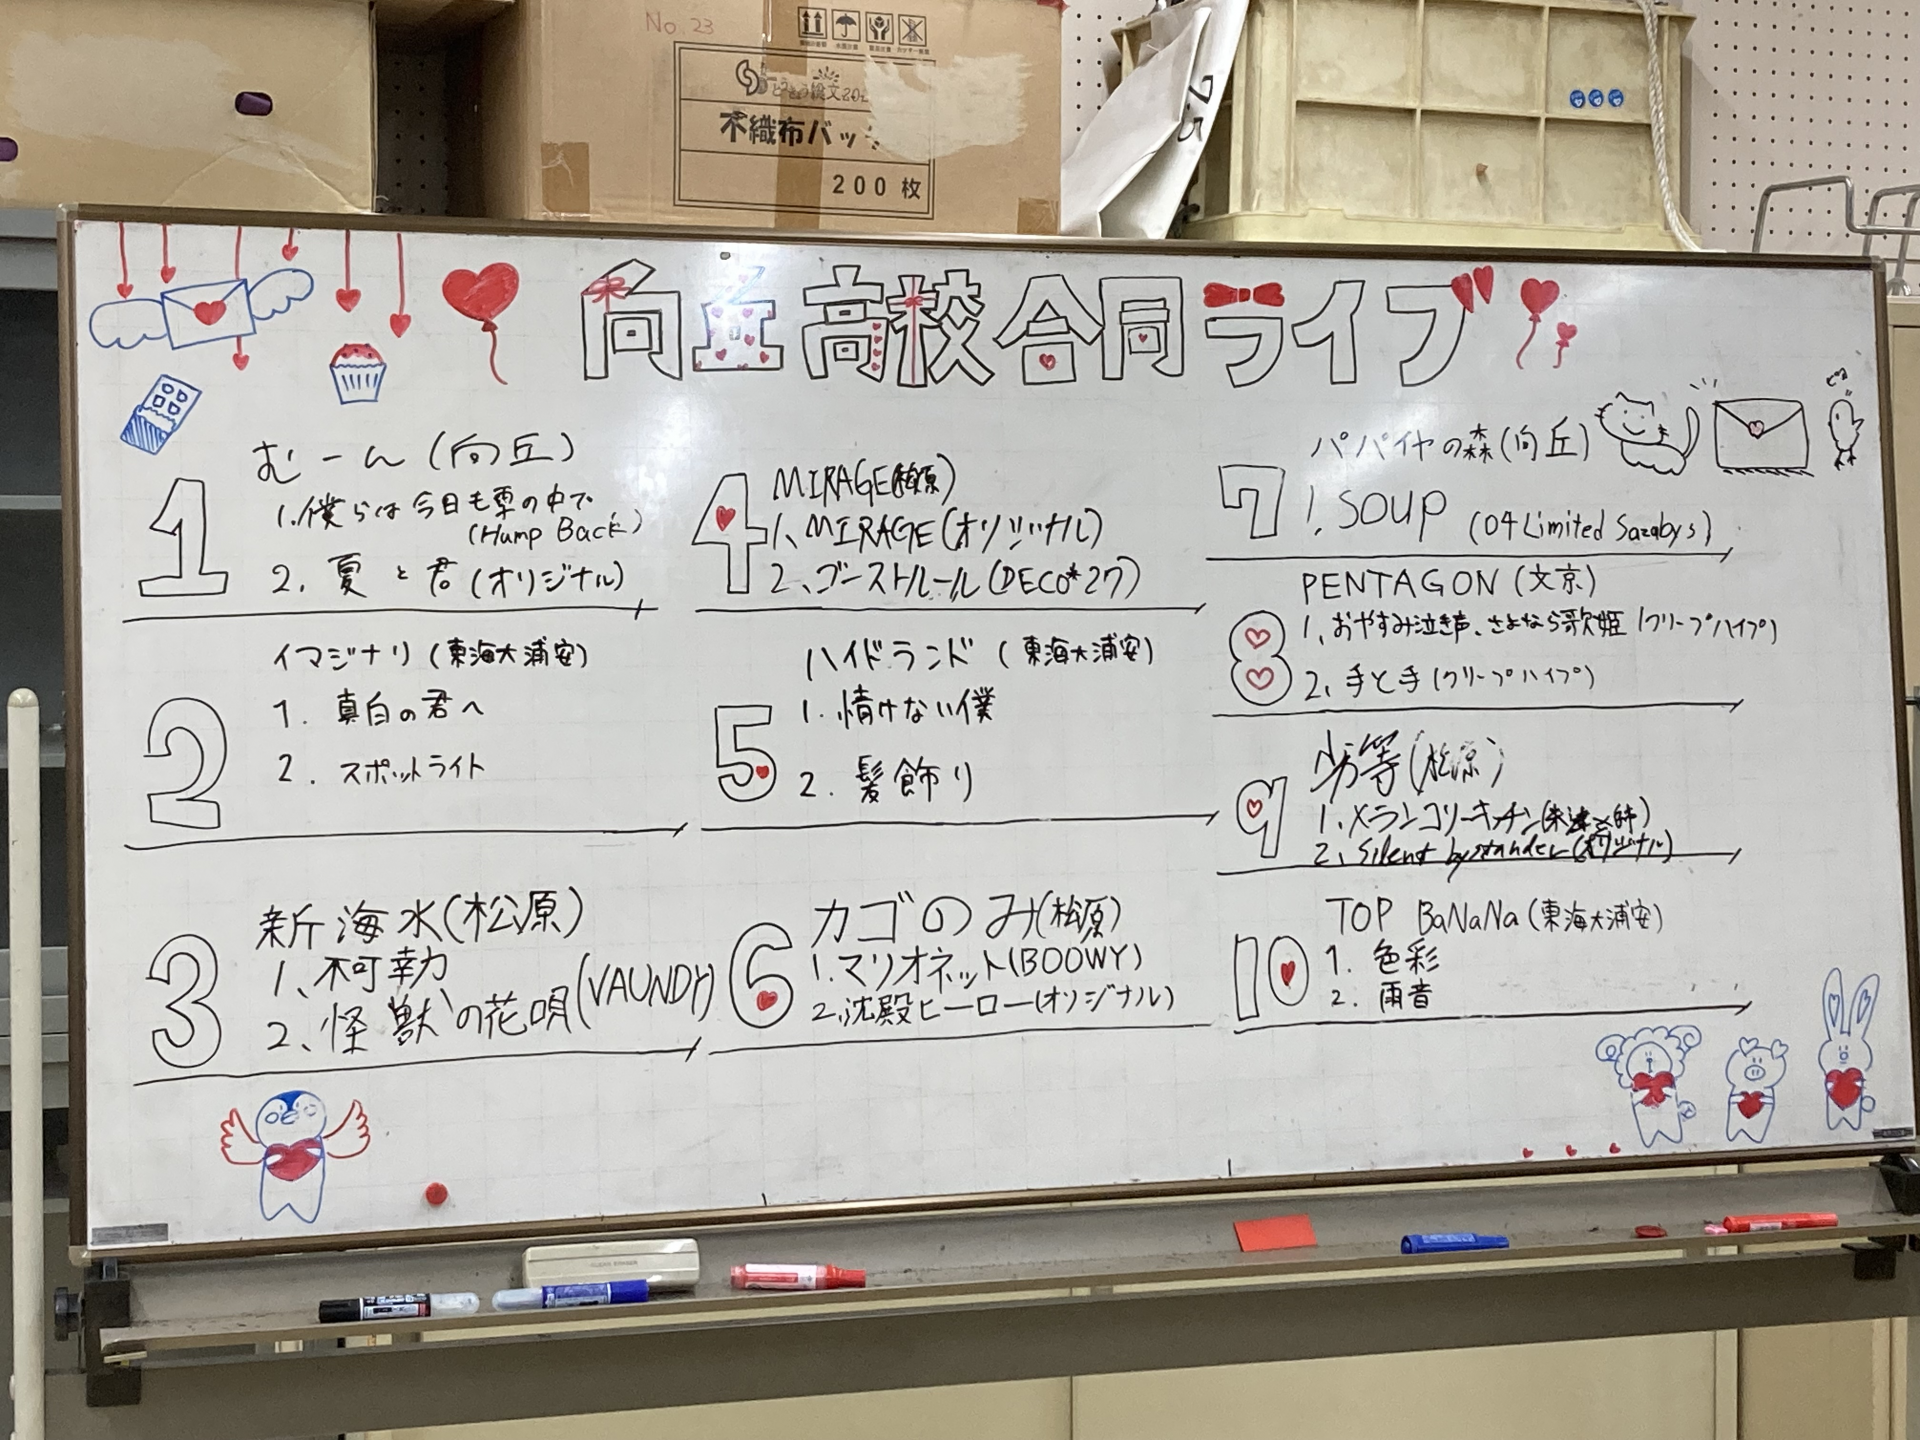 No. 23
不織布バッ
200 枚
7.5
向丘高校合同ライブ
1
むーん(向丘)
1.僕らは今日も車の中で
(Hump Back)
2. 夏と君(オリジナル)
2
イマジナリ(東海大浦安)
1. 真白の君へ
2. スポットライト
3
新海水(松原)
1、不可幸力
2、怪獣の花唄(VAUNDY)
4
MIRAGE(松原)
1、MIRAGE(オリジナル)
2、ゴーストルール(DECO*27)
5
ハイドランド(東海大浦安)
1. 情けない僕
2. 髪飾り
6
カゴのみ(松原)
1.マリオネット(BOOWY)
2.沈殿ヒーロー(オリジナル)
7
パパイヤの森(向丘)
1. SOUP (04 Limited Sazabys)
8
PENTAGON(文京)
1、おやすみ泣き声、さよなら歌姫(クリープハイプ)
2、手と手(クリープハイプ)
9
劣等(松原)
1、メランコリーキッチン(米津玄師)
2、Silent bystander(オリジナル)
10
TOP BaNaNa(東海大浦安)
1. 色彩
2. 雨音